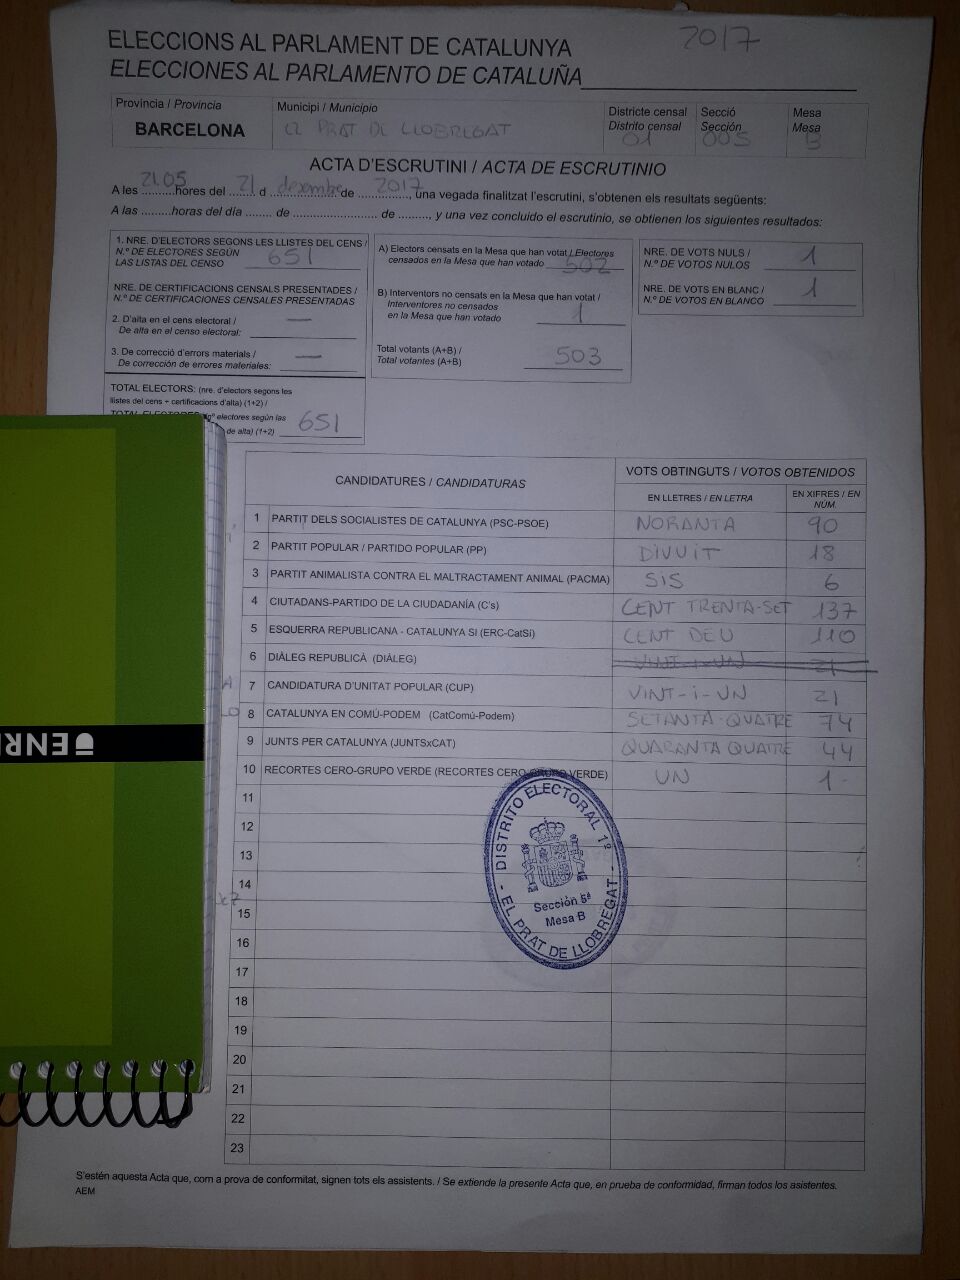 2017
ELECCIONS AL PARLAMENT DE CATALUNYA
ELECCIONES AL PARLAMENTO DE CATALUÑA
Província / Provincia
BARCELONA
Municipi / Municipio
EL PRAT DE LLOBREGAT
Districte censal
Distrito censal
01
Secció
Sección
005
Mesa
Mesa
B
ACTA D'ESCRUTINI / ACTA DE ESCRUTINIO
A les 21.05 hores del 21 d desembre de 2017, una vegada finalitzat l'escrutini, s'obtenen els resultats següents:
A las .........horas del día ........ de ......................... de .........., y una vez concluido el escrutinio, se obtienen los siguientes resultados:
1. NRE. D'ELECTORS SEGONS LES LLISTES DEL CENS /
N.º DE ELECTORES SEGÚN
LAS LISTAS DEL CENSO 651
NRE. DE CERTIFICACIONS CENSALS PRESENTADES /
N.º DE CERTIFICACIONES CENSALES PRESENTADAS
2. D'alta en el cens electoral / —
De alta en el censo electoral:
3. De correcció d'errors materials / —
De corrección de errores materiales:
TOTAL ELECTORS: (nre. d'electors segons les
llistes del cens + certificacions d'alta) (1+2) /
TOTAL ELECTORES: (nº electores según las
de alta) (1+2) 651
A) Electors censats en la Mesa que han votat / Electores
censados en la Mesa que han votado 502
B) Interventors no censats en la Mesa que han votat /
Interventores no censados
en la Mesa que han votado 1
Total votants (A+B) /
Total votantes (A+B) 503
NRE. DE VOTS NULS /
N.º DE VOTOS NULOS 1
NRE. DE VOTS EN BLANC /
N.º DE VOTOS EN BLANCO 1
CANDIDATURES / CANDIDATURAS
VOTS OBTINGUTS / VOTOS OBTENIDOS
EN LLETRES / EN LETRA
EN XIFRES / EN NÚM.
1 PARTIT DELS SOCIALISTES DE CATALUNYA (PSC-PSOE) NORANTA 90
2 PARTIT POPULAR / PARTIDO POPULAR (PP) DIVUIT 18
3 PARTIT ANIMALISTA CONTRA EL MALTRACTAMENT ANIMAL (PACMA) SIS 6
4 CIUTADANS-PARTIDO DE LA CIUDADANÍA (C's) CENT TRENTA-SET 137
5 ESQUERRA REPUBLICANA - CATALUNYA SI (ERC-CatSí) CENT DEU 110
6 DIÀLEG REPUBLICÀ (DIÀLEG) VINT-I-UN 21
7 CANDIDATURA D'UNITAT POPULAR (CUP) VINT-i-UN 21
8 CATALUNYA EN COMÚ-PODEM (CatComú-Podem) SETANTA-QUATRE 74
9 JUNTS PER CATALUNYA (JUNTSxCAT) QUARANTA QUATRE 44
10 RECORTES CERO-GRUPO VERDE (RECORTES CERO-GRUPO VERDE) UN 1-
11
12
13
14
15
16
17
18
19
20
21
22
23
DISTRITO ELECTORAL 1º
Sección 5ª
Mesa B
EL PRAT DE LLOBREGAT
ENRI
S'estén aquesta Acta que, com a prova de conformitat, signen tots els assistents. / Se extiende la presente Acta que, en prueba de conformidad, firman todos los asistentes.
AEM